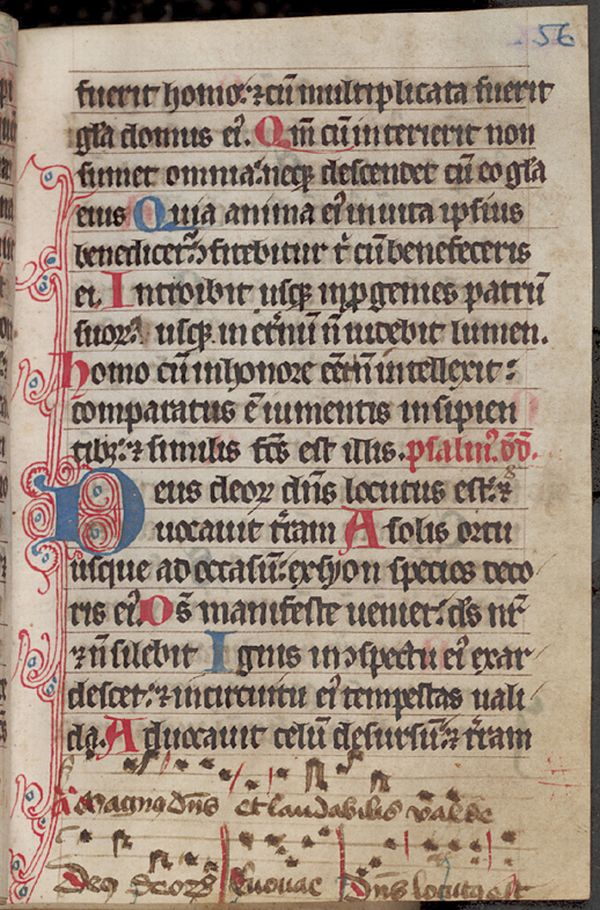 56
fuerit homo: ⁊ cū multiplicata fuerit
gl̄a domus eiꝰ. Qm̄ cū interierit non
sumet omnia: neqꝫ descendet cū eo gl̄a
eius Quia anima eiꝰ in uita ipsius
benedicetᷣ: ↄfitebitur t̄ cū benefeceris
ei. Introibit usqꝫ in ꝓgenies patrū
suoꝝ usqꝫ in et̄nū n̄ uidebit lumen.
homo cū in honore eēt n̄ intellexit:
comparatus ē iumentis insipien
tibꝫ: ⁊ similis fc̄s est illis. psalmꝰ. dd̄.
Deus deoꝝ dn̄s locutus est: ⁊
uocauit t̄ram A solis ortu
usque ad occasū: ex syon species deco
ris eiꝰ Ds̄ manifeste ueniet: ds̄ nr̄
⁊ n̄ silebit Ignis in ↄspectu eiꝰ exar
descet: ⁊ in circuitu eiꝰ tempestas uali
da. Aduocauit celū desursū: ⁊ t̄ram
A Magnꝰ dn̄s et laudabilis valde
Deꝰ deoꝝ Euouae Dn̄s locutꝰ est